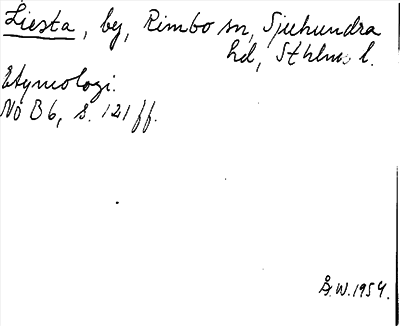 Liesta, by, Rimbo sn, Sjuhundra
hd, Sthlms l.
Etymologi.
NoB 6, s. 121 ff.
Å.W. 1954.